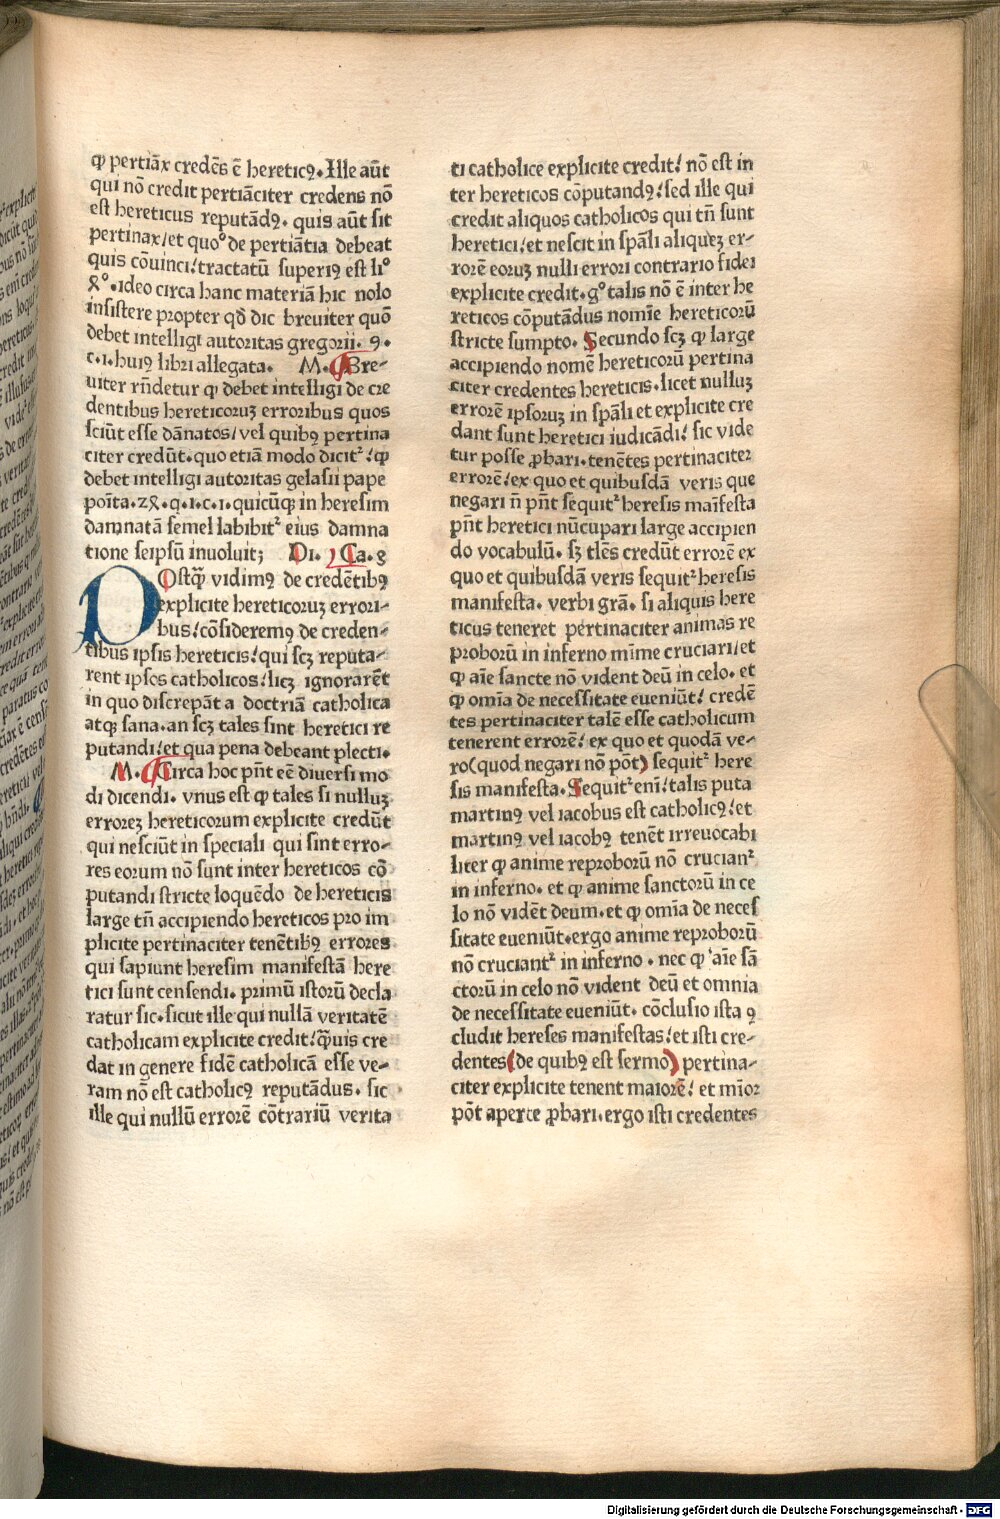 ꝙ pertiāx credēs ē heretic⁹. Ille aūt
qui nō credit pertiāciter credens nō
est hereticus reputād⁹. quis aūt sit
pertinax/et quo° de pertiātia debeat
quis cōuinci/tractatū superi⁹ est li°
ideo circa hanc materiā hic nolo
insistere propter qd̄ dic breuiter quō
debet intelligi autoritas gregorii. 9.
c.i.hui⁹ libri allegata. M. Bre-
uiter rn̄detur ꝙ debet intelligi de cre
dentibus hereticoruꝫ erroribus quos
sciūt esse dānatos/vel quib⁹ pertina
citer credūt.quo etiā modo dicit²/ꝙ
debet intelligi autoritas gelasii pape
poīta.
q.i.c.i.quicūqꝫ in heresim
damnatā semel labibit² eius damna
tione seipsū inuoluit; Di. Ca. 8
POstq̄ꝫ vidim⁹ de credētib⁹
explicite hereticoruꝫ errori-
bus/cōsiderem⁹ de creden-
tibus ipsis hereticis/qui scꝫ reputa-
rent ipsos catholicos/licꝫ ignorarēt
in quo discrepāt a doctriā catholica
atqꝫ sana.an scꝫ tales sint heretici re
putandi/et qua pena debeant plecti.
M. Circa hoc pn̄t eē diuersi mo
di dicendi. vnus est ꝙ tales si nulluꝫ
erroreꝫ hereticorum explicite credūt
qui nesciūt in speciali qui sint erro-
res eorum nō sunt inter hereticos cō
putandi stricte loquēdo de hereticis
large tn̄ accipiendo hereticos pro im
plicite pertinaciter tenētib⁹ errores
qui sapiunt heresim manifestā here
tici sunt censendi. primū istorū decla
ratur sic.sicut ille qui nullā veritatē
catholicam explicite credit/q̄ꝫuis cre
dat in genere fidē catholicā esse ve-
ram nō est catholic⁹ reputādus. sic
ille qui nullū errorē cōtrariū verita
ti catholice explicite credit/ nō est in
ter hereticos cōputand⁹/sed ille qui
credit aliquos catholicos qui tn̄ sunt
heretici/et nescit in spāli aliqueꝫ er-
rorē eoruꝫ nulli errori contrario fidei
explicite credit. g° talis nō ē inter he
reticos cōputādus nomīe hereticorū
stricte sumpto. Secundo scꝫ ꝙ large
accipiendo nomē hereticorū pertina
citer credentes hereticis.licet nulluꝫ
errorē ipsoruꝫ in spāli et explicite cre
dant sunt heretici iudicādi/ sic vide
tur posse ꝓbari.tenētes pertinaciter
errorē/ex quo et quibusdā veris que
negari n̄ pn̄t sequit² heresis maīfesta
pn̄t heretici nūcupari large accipien
do vocabulū. sꝫ tlēs credūt errorē ex
quo et quibusdā veris sequit² heresis
manifesta. verbi grā. si aliquis here
ticus teneret pertinaciter animas re
proborū in inferno mīme cruciari/et
ꝙ aīe sancte nō vident deū in celo. et
ꝙ omīa de necessitate eueniūt/ credē
tes pertinaciter talē esse catholicum
tenerent errorē/ ex quo et quodā ve-
ro(quod negari nō pōt) sequit² here
sis manifesta. Sequit² enī/talis puta
martin⁹ vel iacobus est catholic⁹/et
martin⁹ vel iacob⁹ tenēt irreuocabi
liter ꝙ anime reproborū nō crucian²
in inferno. et ꝙ anime sanctorū in ce
lo nō vidēt deum.et ꝙ omīa de necef
sitate eueniūt.ergo anime reproborū
nō cruciant² in inferno. nec ꝙ aīe sā
ctorū in celo nō vident deū et omnia
de necessitate eueniūt. cōclusio ista ꝯ
cludit hereses manifestas/et isti cre-
dentes(de quib⁹ est sermo) pertina-
citer explicite tenent maiorē/ et mīor
pōt aperte ꝓbari.ergo isti credentes
Digitalisierung gefördert durch die Deutsche Forschungsgemeinschaft - DFG